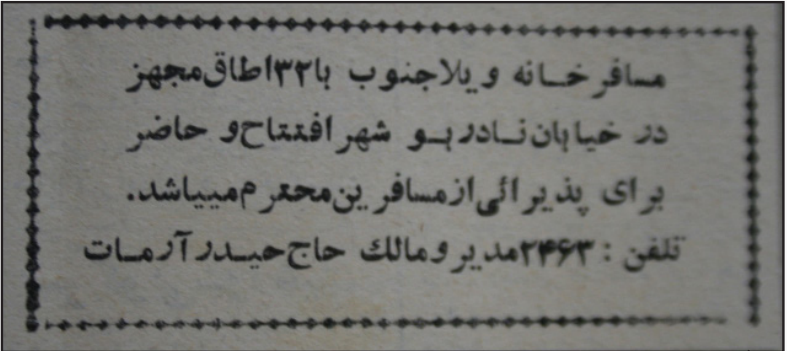 مسافرخانه ویلاجنوب با ۳۲ اطاق مجهز
در خیابان نادر بو شهر افتتاح و حاضر
برای پذیرائی از مسافرین محترم میباشد.
تلفن : ۲۴۶۳ مدیر و مالك حاج حیدر آرمات